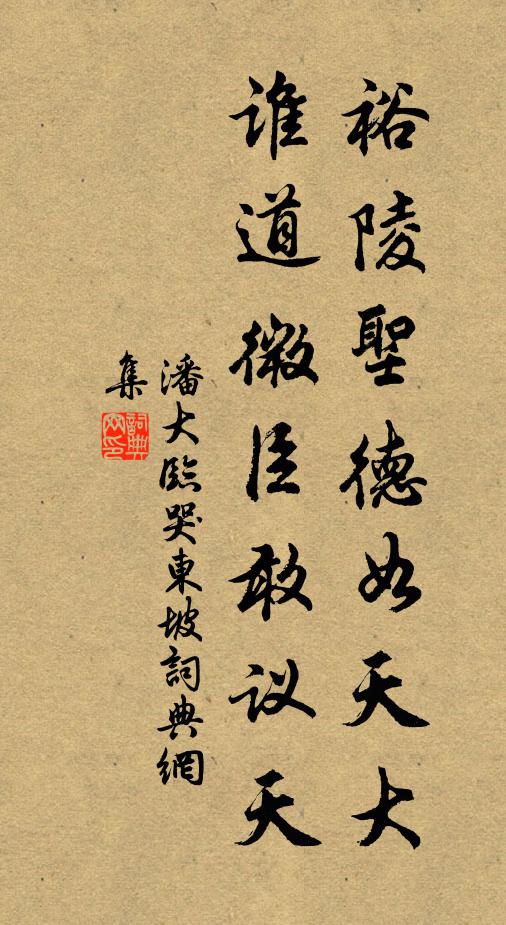 裕陵聖德如天大
谁道微臣敢议天
潘大臨哭東坡詞典網
集
詞典網印